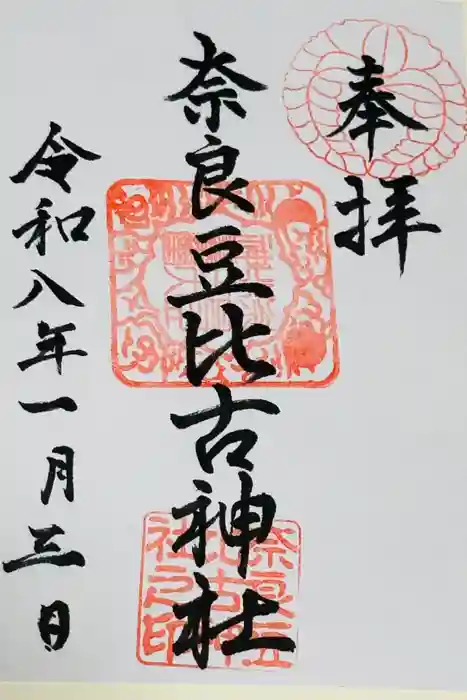 奉拝
奈良豆比古神社
令和八年一月三日
奈良豆
比古神
社之印